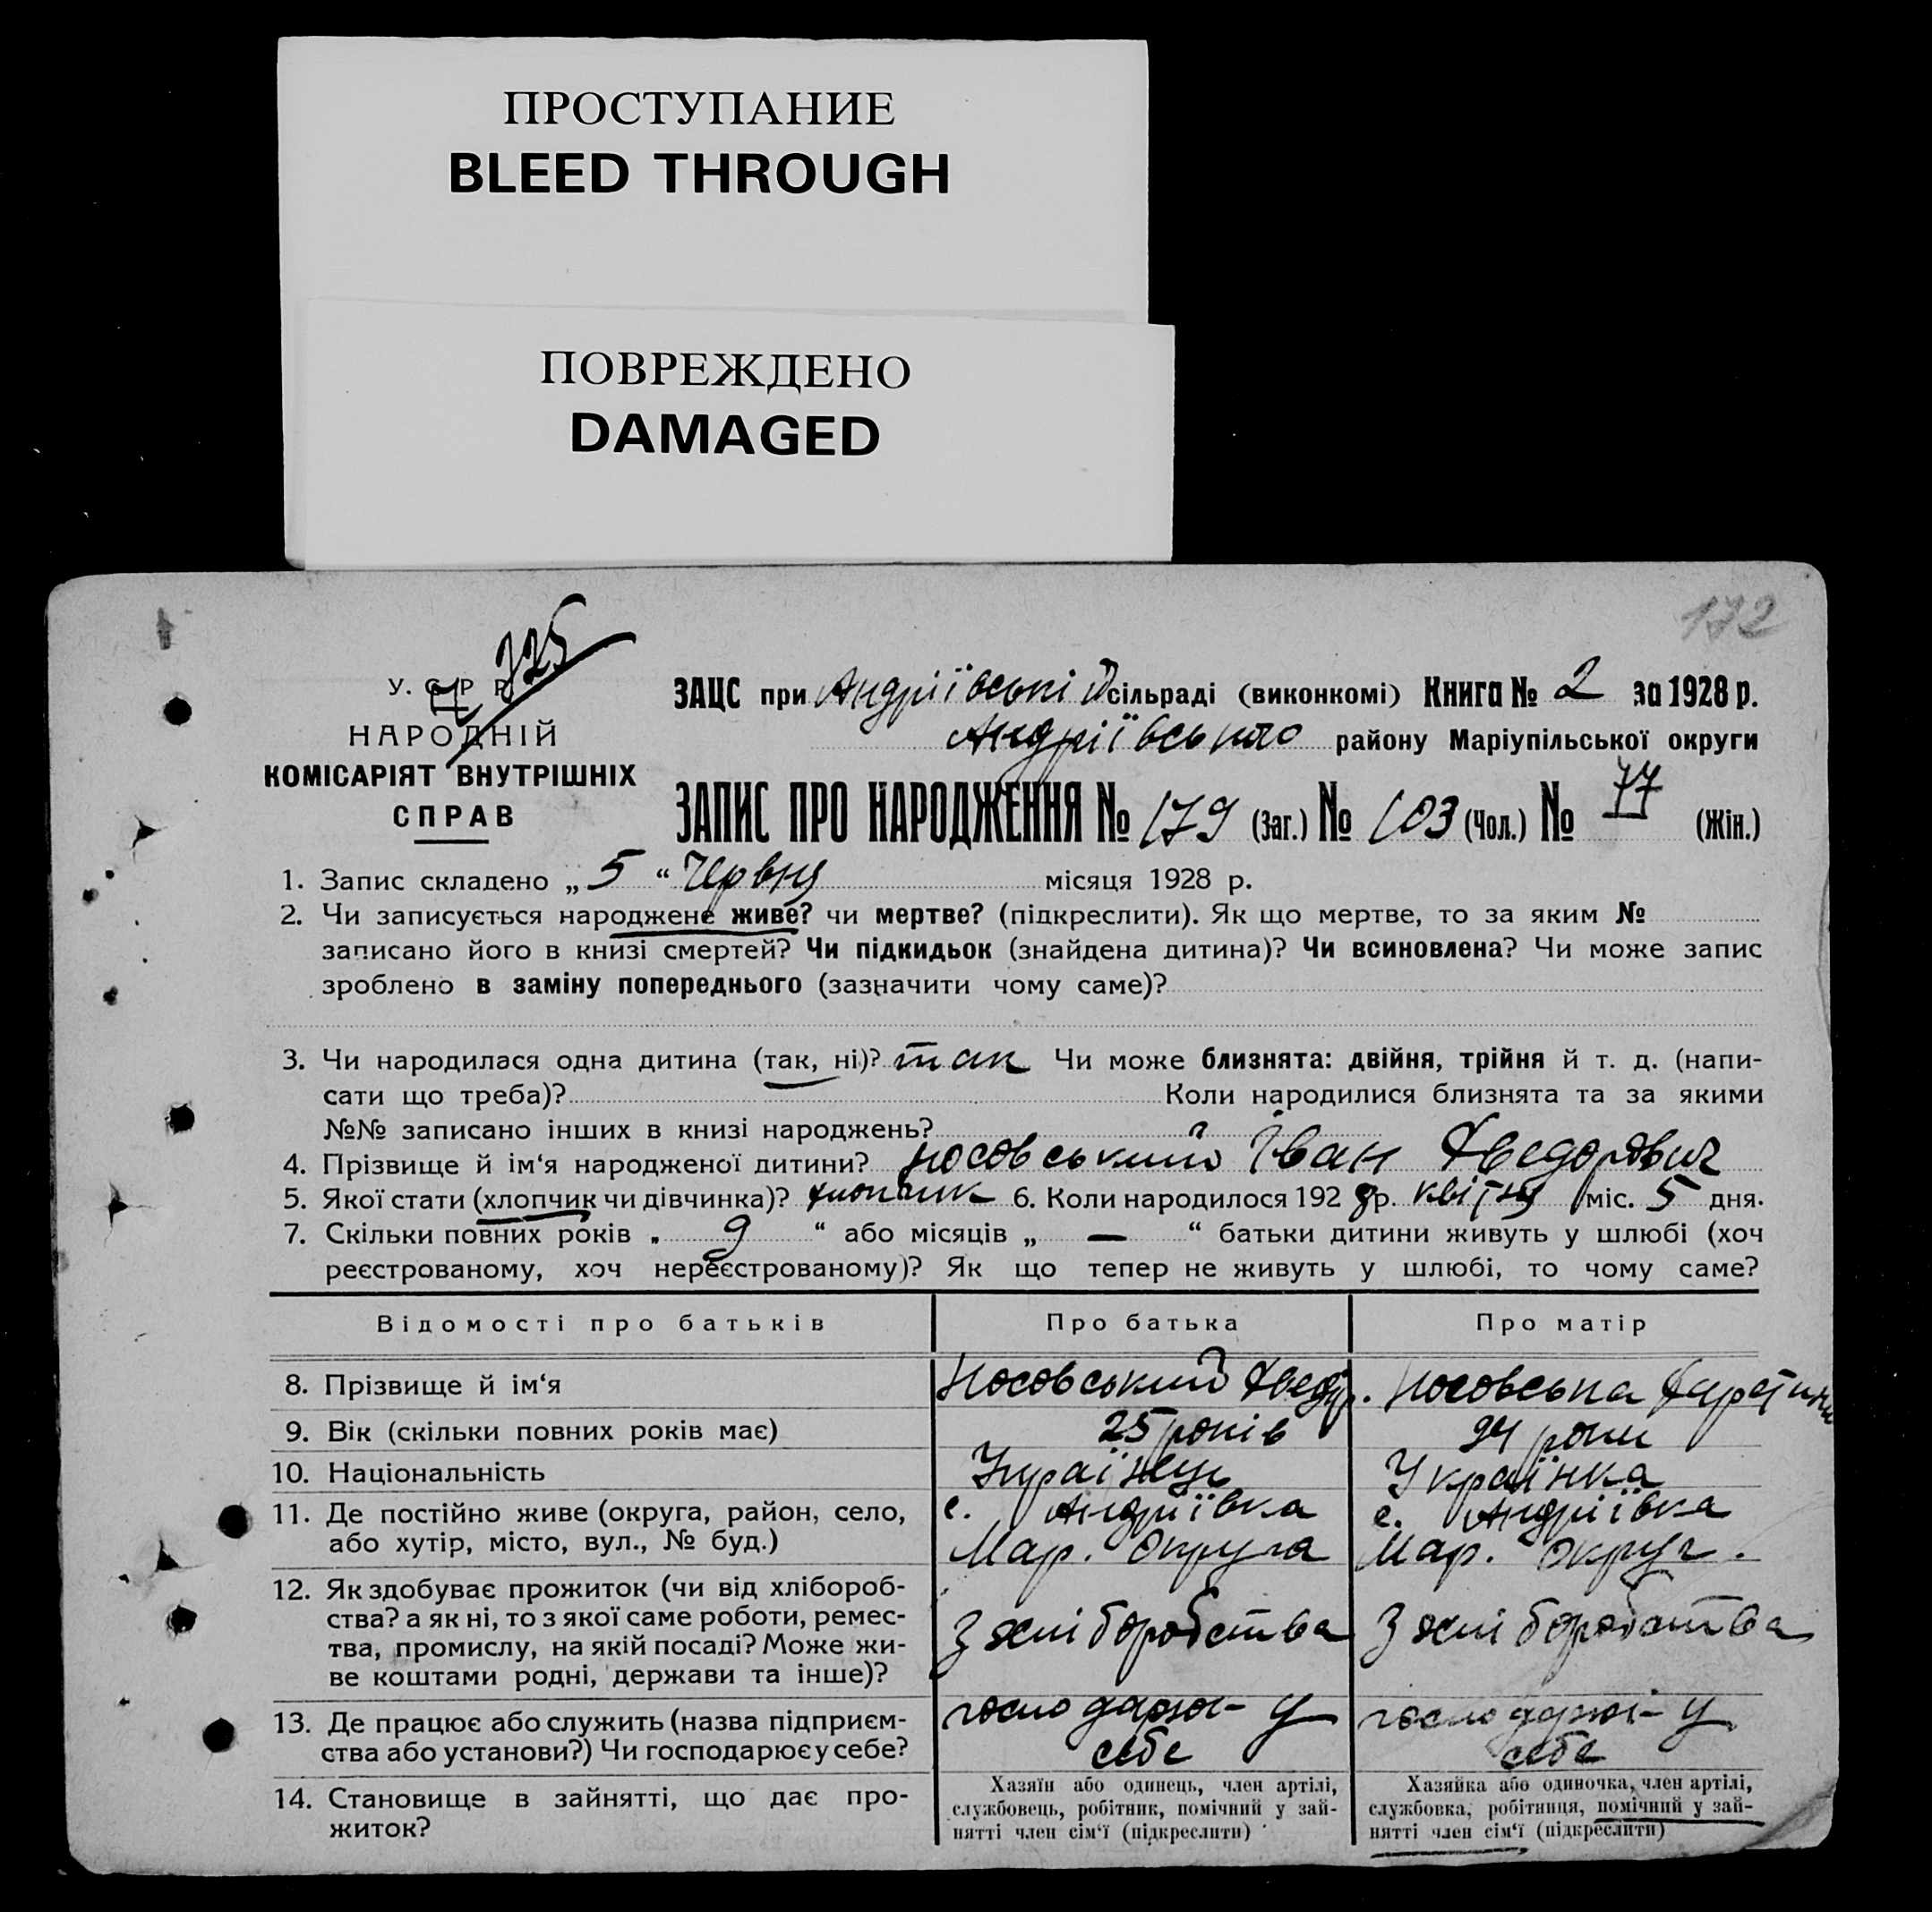 ПРОСТУПАНИЕ
BLEED THROUGH
ПОВРЕЖДЕНО
DAMAGED
172
У. С Р Р
НАРОДНІЙ
КОМІСАРІЯТ ВНУТРІШНІХ
СПРАВ
ЗАЦС при Андріївській сільраді (виконкомі) Книга № 2 за 1928 р.
Андріївського району Маріупільської округи
ЗАПИС ПРО НАРОДЖЕННЯ № 179 (Заг.) № 103 (Чол.) № 77 (Жін.)
1. Запис складено „ 5 “ Червня місяця 1928 р.
2. Чи записується народжене живе? чи мертве? (підкреслити). Як що мертве, то за яким №
записано його в книзі смертей? Чи підкидьок (знайдена дитина)? Чи всиновлена? Чи може запис
зроблено в заміну попереднього (зазначити чому саме)?
3. Чи народилася одна дитина (так, ні)? так Чи може близнята: двійня, трійня й т. д. (напи-
сати що треба)? Коли народилися близнята та за якими
№№ записано інших в книзі народжень?
4. Прізвище й ім‘я народженої дитини? Носовський Іван Хведорович
5. Якої стати (хлопчик чи дівчинка)? хлопчик 6. Коли народилося 192 8 р. квітня міс. 5 дня.
7. Скільки повних років „ 9 “ або місяців „ — “ батьки дитини живуть у шлюбі (хоч
реєстрованому, хоч нереєстрованому)? Як що тепер не живуть у шлюбі, то чому саме?
Відомості про батьків Про батька Про матір
8. Прізвище й ім‘я Носовський Хведір. Носовська
9. Вік (скільки повних років має) 25 років 24 роки
10. Національність Українець Українка
11. Де постійно живе (округа, район, село, с. Андріївка с. Андріївка
або хутір, місто, вул., № буд.) Мар. Округа Мар. Округ.
12. Як здобуває прожиток (чи від хлібороб-
ства? а як ні, то з якої саме роботи, ремес- З хліборобства З хліборобства
тва, промислу, на якій посаді? Може жи-
ве коштами родні, держави та інше)?
13. Де працює або служить (назва підприєм- господарює у господарює у
ства або установи?) Чи господарює у себе? себе себе
14. Становище в зайнятті, що дає про-
житок?
Хазяїн або одинець, член артілі,
службовець, робітник, помічний у зай-
нятті член сім‘ї (підкреслити)
Хазяйка або одиночка, член артілі,
службовка, робітниця, помічний у зай-
нятті член сім‘ї (підкреслити)